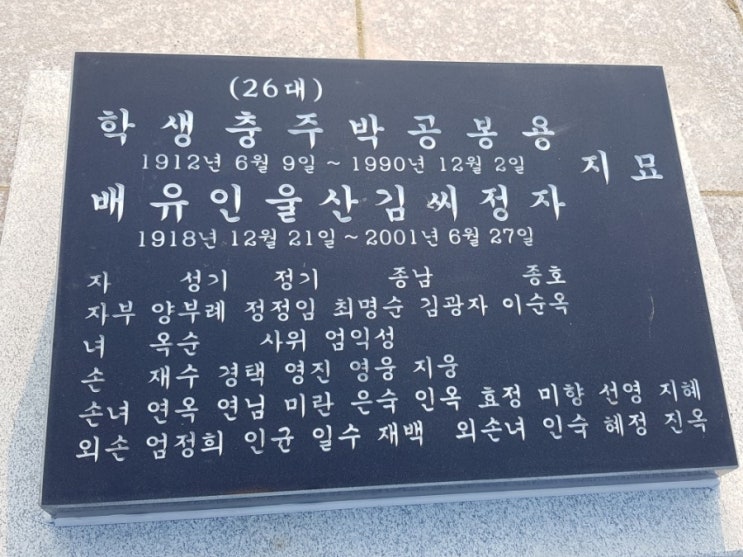 (26대)
학생충주박공봉용
1912년 6월 9일 ~ 1990년 12월 2일
지묘
배유인울산김씨정자
1918년 12월 21일 ~ 2001년 6월 27일
자 성기 정기 종남 종호
자부 양부례 정정임 최명순 김광자 이순옥
녀 옥순 사위 엄익성
손 재수 경택 영진 영웅 지웅
손녀 연옥 연님 미란 은숙 인옥 효정 미향 선영 지혜
외손 엄정희 인균 일수 재백 외손녀 인숙 혜정 진옥